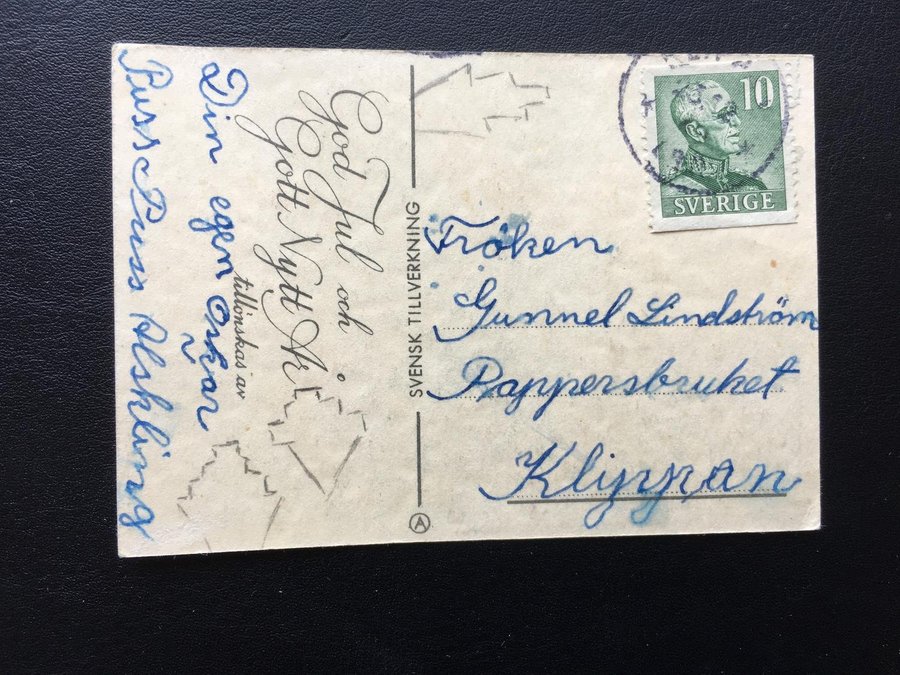 God Jul och
Gott Nytt År
tillönskas av
Din egen Oskar
Puss Puss Älskling
SVENSK TILLVERKNING
A
10
SVERIGE
Fröken
Gunnel Lindström
Pappersbruket
Klippan